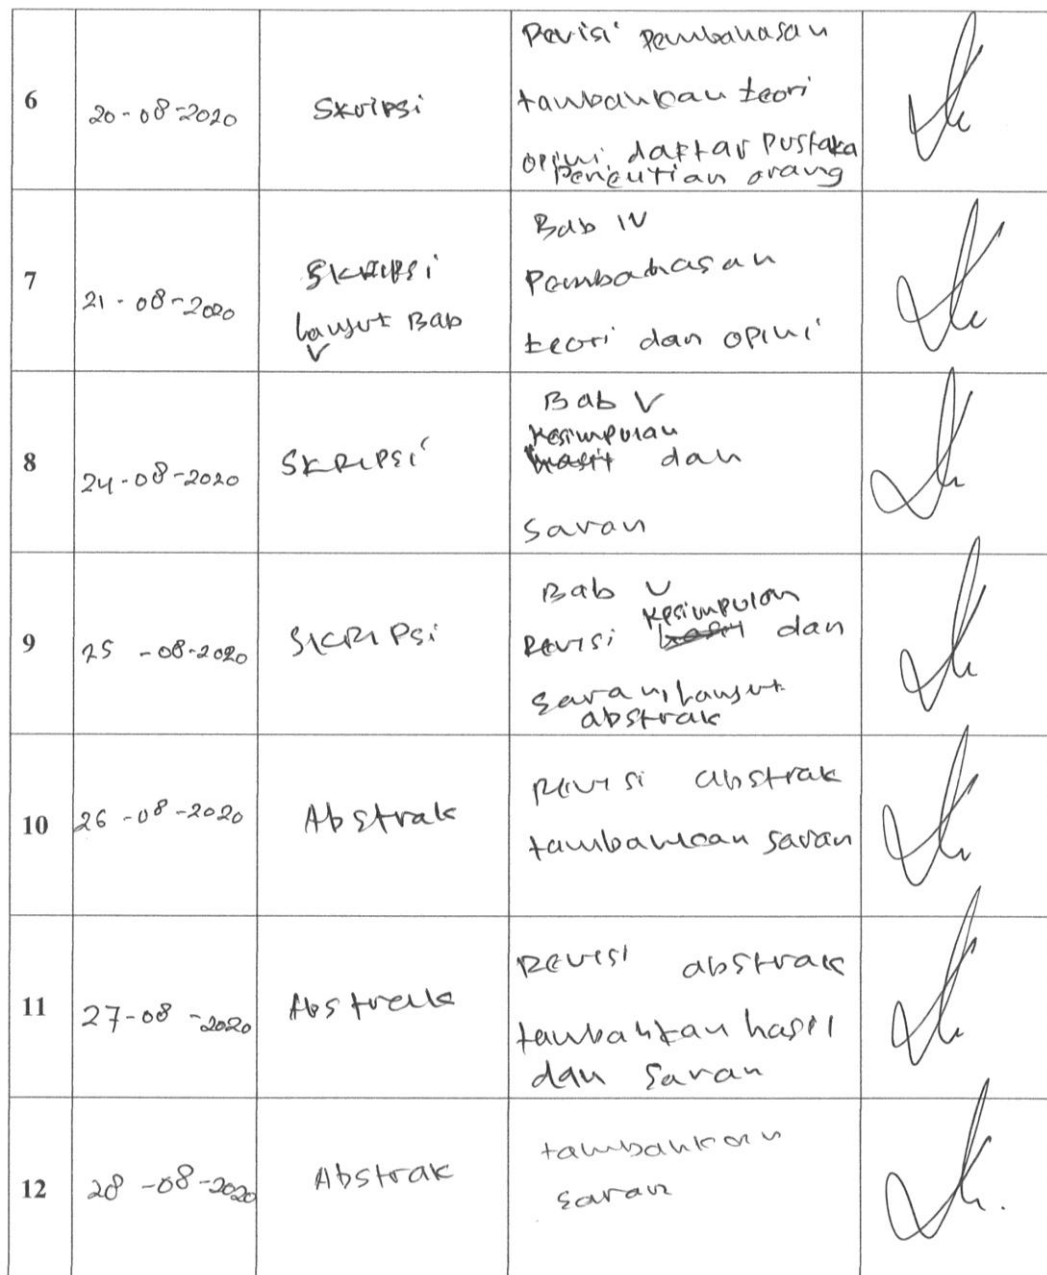 6
20-08-2020
Skripsi
Revisi Pembahasan
tambahkan teori
opini daftar Pustaka
Penelitian orang
7
21-08-2020
Skripsi
Lanjut Bab
V
Bab IV
Pembahasan
teori dan opini
8
24-08-2020
SKRIPSi
Bab V
Kesimpulan
hasil dan
saran
9
25-08-2020
SKRIPSi
Bab V
Kesimpulan
Revisi hasil dan
saran, Lanjut
abstrak
10
26-08-2020
Abstrak
Revisi abstrak
tambahkan saran
11
27-08-2020
Abstrak
Revisi abstrak
tambahkan hasil
dan saran
12
28-08-2020
Abstrak
tambahkan
saran